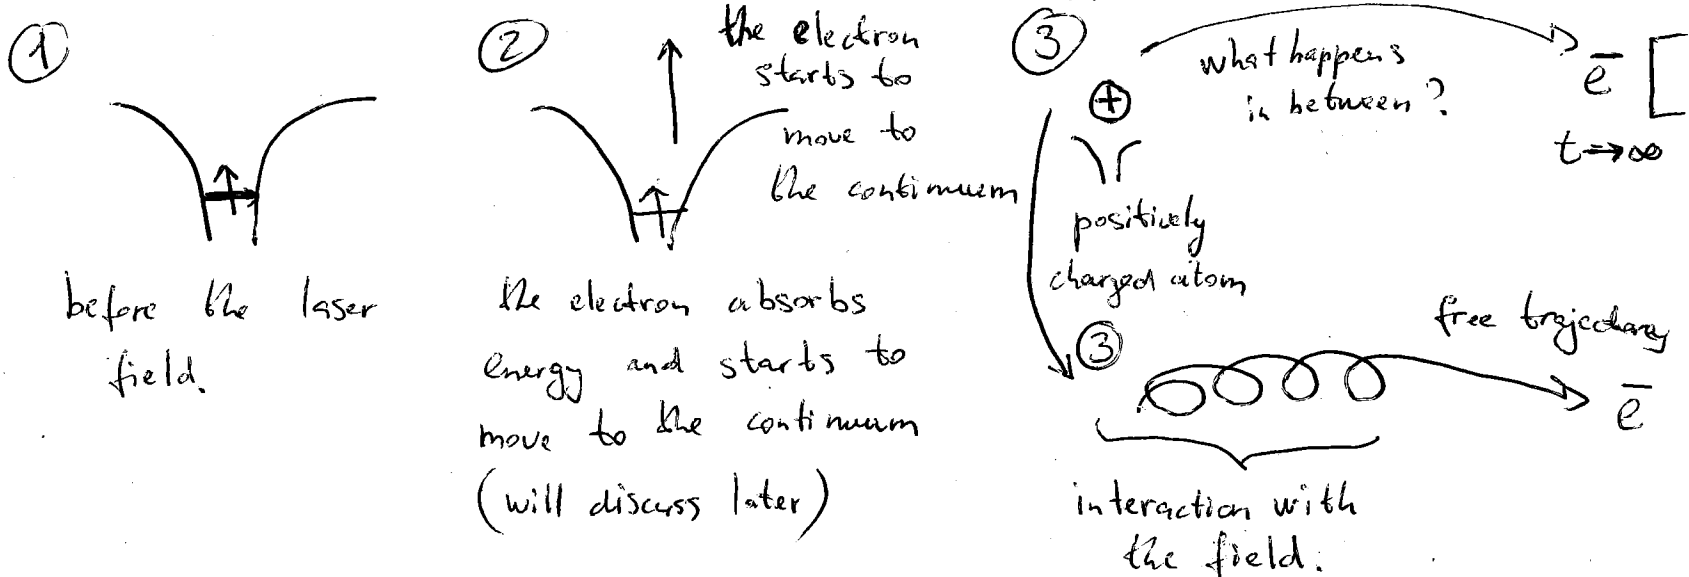 ①
before the laser
field.
②
the electron
starts to
move to
the continuum
the electron absorbs
energy and starts to
move to the continuum
(will discuss later)
③
what happens
in between?
e̅
t→∞
+
positively
charged atom
③
free trajectory
e̅
interaction with
the field.